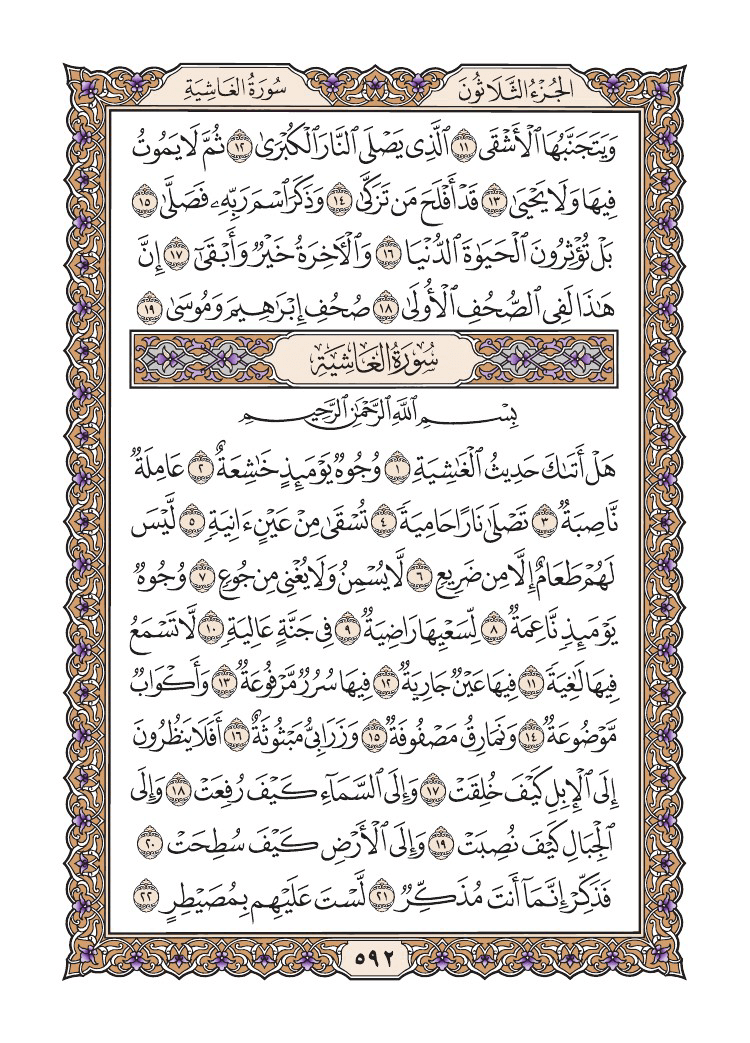 الجزء الثلاثون
سورة الغاشية
وَيَتَجَنَّبُهَا ٱلْأَشْقَى ١١ ٱلَّذِى يَصْلَى ٱلنَّارَ ٱلْكُبْرَىٰ ١٢ ثُمَّ لَا يَمُوتُ
فِيهَا وَلَا يَحْيَىٰ ١٣ قَدْ أَفْلَحَ مَن تَزَكَّىٰ ١٤ وَذَكَرَ ٱسْمَ رَبِّهِۦ فَصَلَّىٰ ١٥
بَلْ تُؤْثِرُونَ ٱلْحَيَوٰةَ ٱلدُّنْيَا ١٦ وَٱلْأَخِرَةُ خَيْرٌ وَأَبْقَىٰٓ ١٧ إِنَّ
هَٰذَا لَفِى ٱلصُّحُفِ ٱلْأُولَىٰ ١٨ صُحُفِ إِبْرَٰهِيمَ وَمُوسَىٰ ١٩
سُورَةُ الغَاشِيَةِ
بِسْمِ ٱللَّهِ ٱلرَّحْمَٰنِ ٱلرَّحِيمِ
هَلْ أَتَىٰكَ حَدِيثُ ٱلْغَٰشِيَةِ ١ وُجُوهٌ يَوْمَئِذٍ خَٰشِعَةٌ ٢ عَامِلَةٌ
نَّاصِبَةٌ ٣ تَصْلَىٰ نَارًا حَامِيَةً ٤ تُسْقَىٰ مِنْ عَيْنٍ ءَانِيَةٍ ٥ لَّيْسَ
لَهُمْ طَعَامٌ إِلَّا مِن ضَرِيعٍ ٦ لَّا يُسْمِنُ وَلَا يُغْنِى مِن جُوعٍ ٧ وُجُوهٌ
يَوْمَئِذٍ نَّاعِمَةٌ ٨ لِّسَعْيِهَا رَاضِيَةٌ ٩ فِى جَنَّةٍ عَالِيَةٍ ١٠ لَّا تَسْمَعُ
فِيهَا لَٰغِيَةً ١١ فِيهَا عَيْنٌ جَارِيَةٌ ١٢ فِيهَا سُرُرٌ مَّرْفُوعَةٌ ١٣ وَأَكْوَابٌ
مَّوْضُوعَةٌ ١٤ وَنَمَارِقُ مَصْفُوفَةٌ ١٥ وَزَرَابِىُّ مَبْثُوثَةٌ ١٦ أَفَلَا يَنظُرُونَ
إِلَى ٱلْإِبِلِ كَيْفَ خُلِقَتْ ١٧ وَإِلَى ٱلسَّمَآءِ كَيْفَ رُفِعَتْ ١٨ وَإِلَى
ٱلْجِبَالِ كَيْفَ نُصِبَتْ ١٩ وَإِلَى ٱلْأَرْضِ كَيْفَ سُطِحَتْ ٢٠
فَذَكِّرْ إِنَّمَآ أَنتَ مُذَكِّرٌ ٢١ لَّسْتَ عَلَيْهِم بِمُصَيْطِرٍ ٢٢
٥٩٢